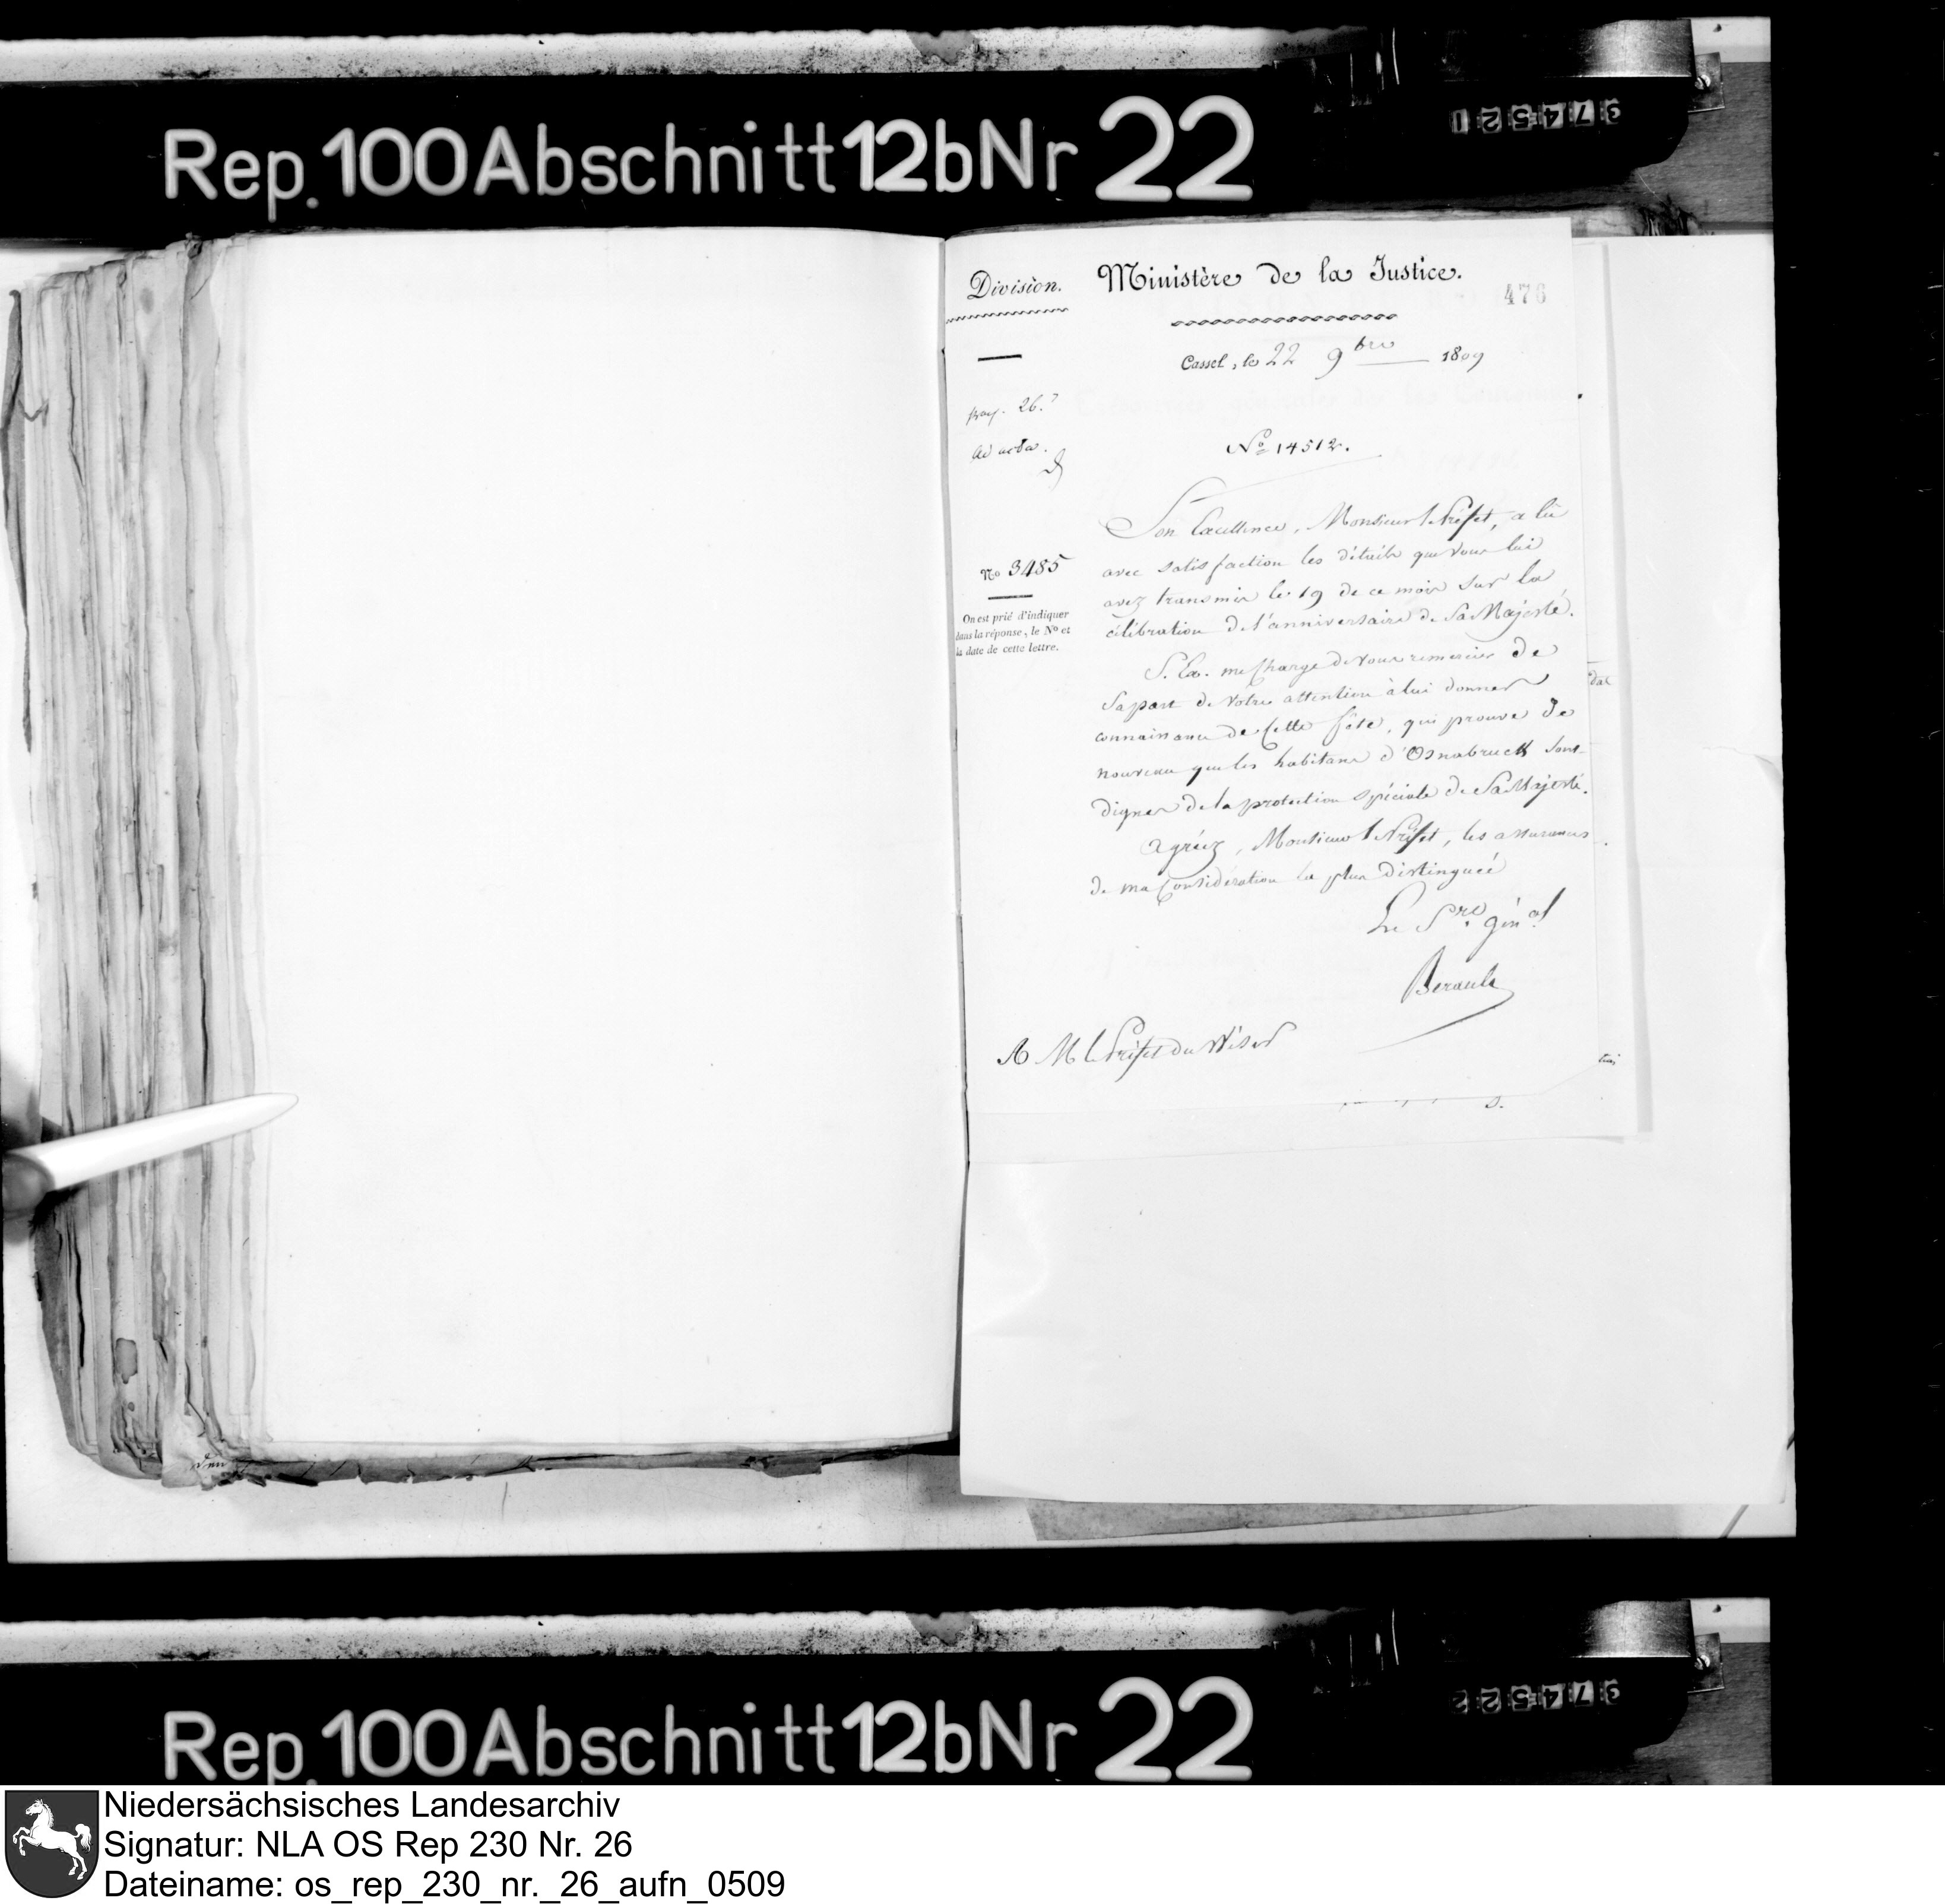 Rep. 100 Abschnitt 12b Nr 22
374521
Division.
Ministère de la Justice.
476
Cassel, le 22 9bre 1809
26.
ad acta.
No 14512.
Son Excellence, Monsieur le Préfet, a lû
avec satisfaction les détails que vous lui
avez transmis le 19 de ce mois sur la
célébration de l'anniversaire de Sa Majesté.
No 3485
On est prié d'indiquer
dans la réponse, le No et
la date de cette lettre.
S. Ex. me charge de vous remercier de
sa part de votre attention à lui donner
connaissance de cette fête, qui prouve de
nouveau que les habitans d'Osnabruck sont
dignes de la protection spéciale de Sa Majesté.
Agréez, Monsieur le Préfet, les assurances
de ma considération la plus distinguée
Le Sre génal
A M le Préfet du Weser
Rep. 100 Abschnitt 12b Nr 22
374522
Niedersächsisches Landesarchiv
Signatur: NLA OS Rep 230 Nr. 26
Dateiname: os_rep_230_nr._26_aufn_0509